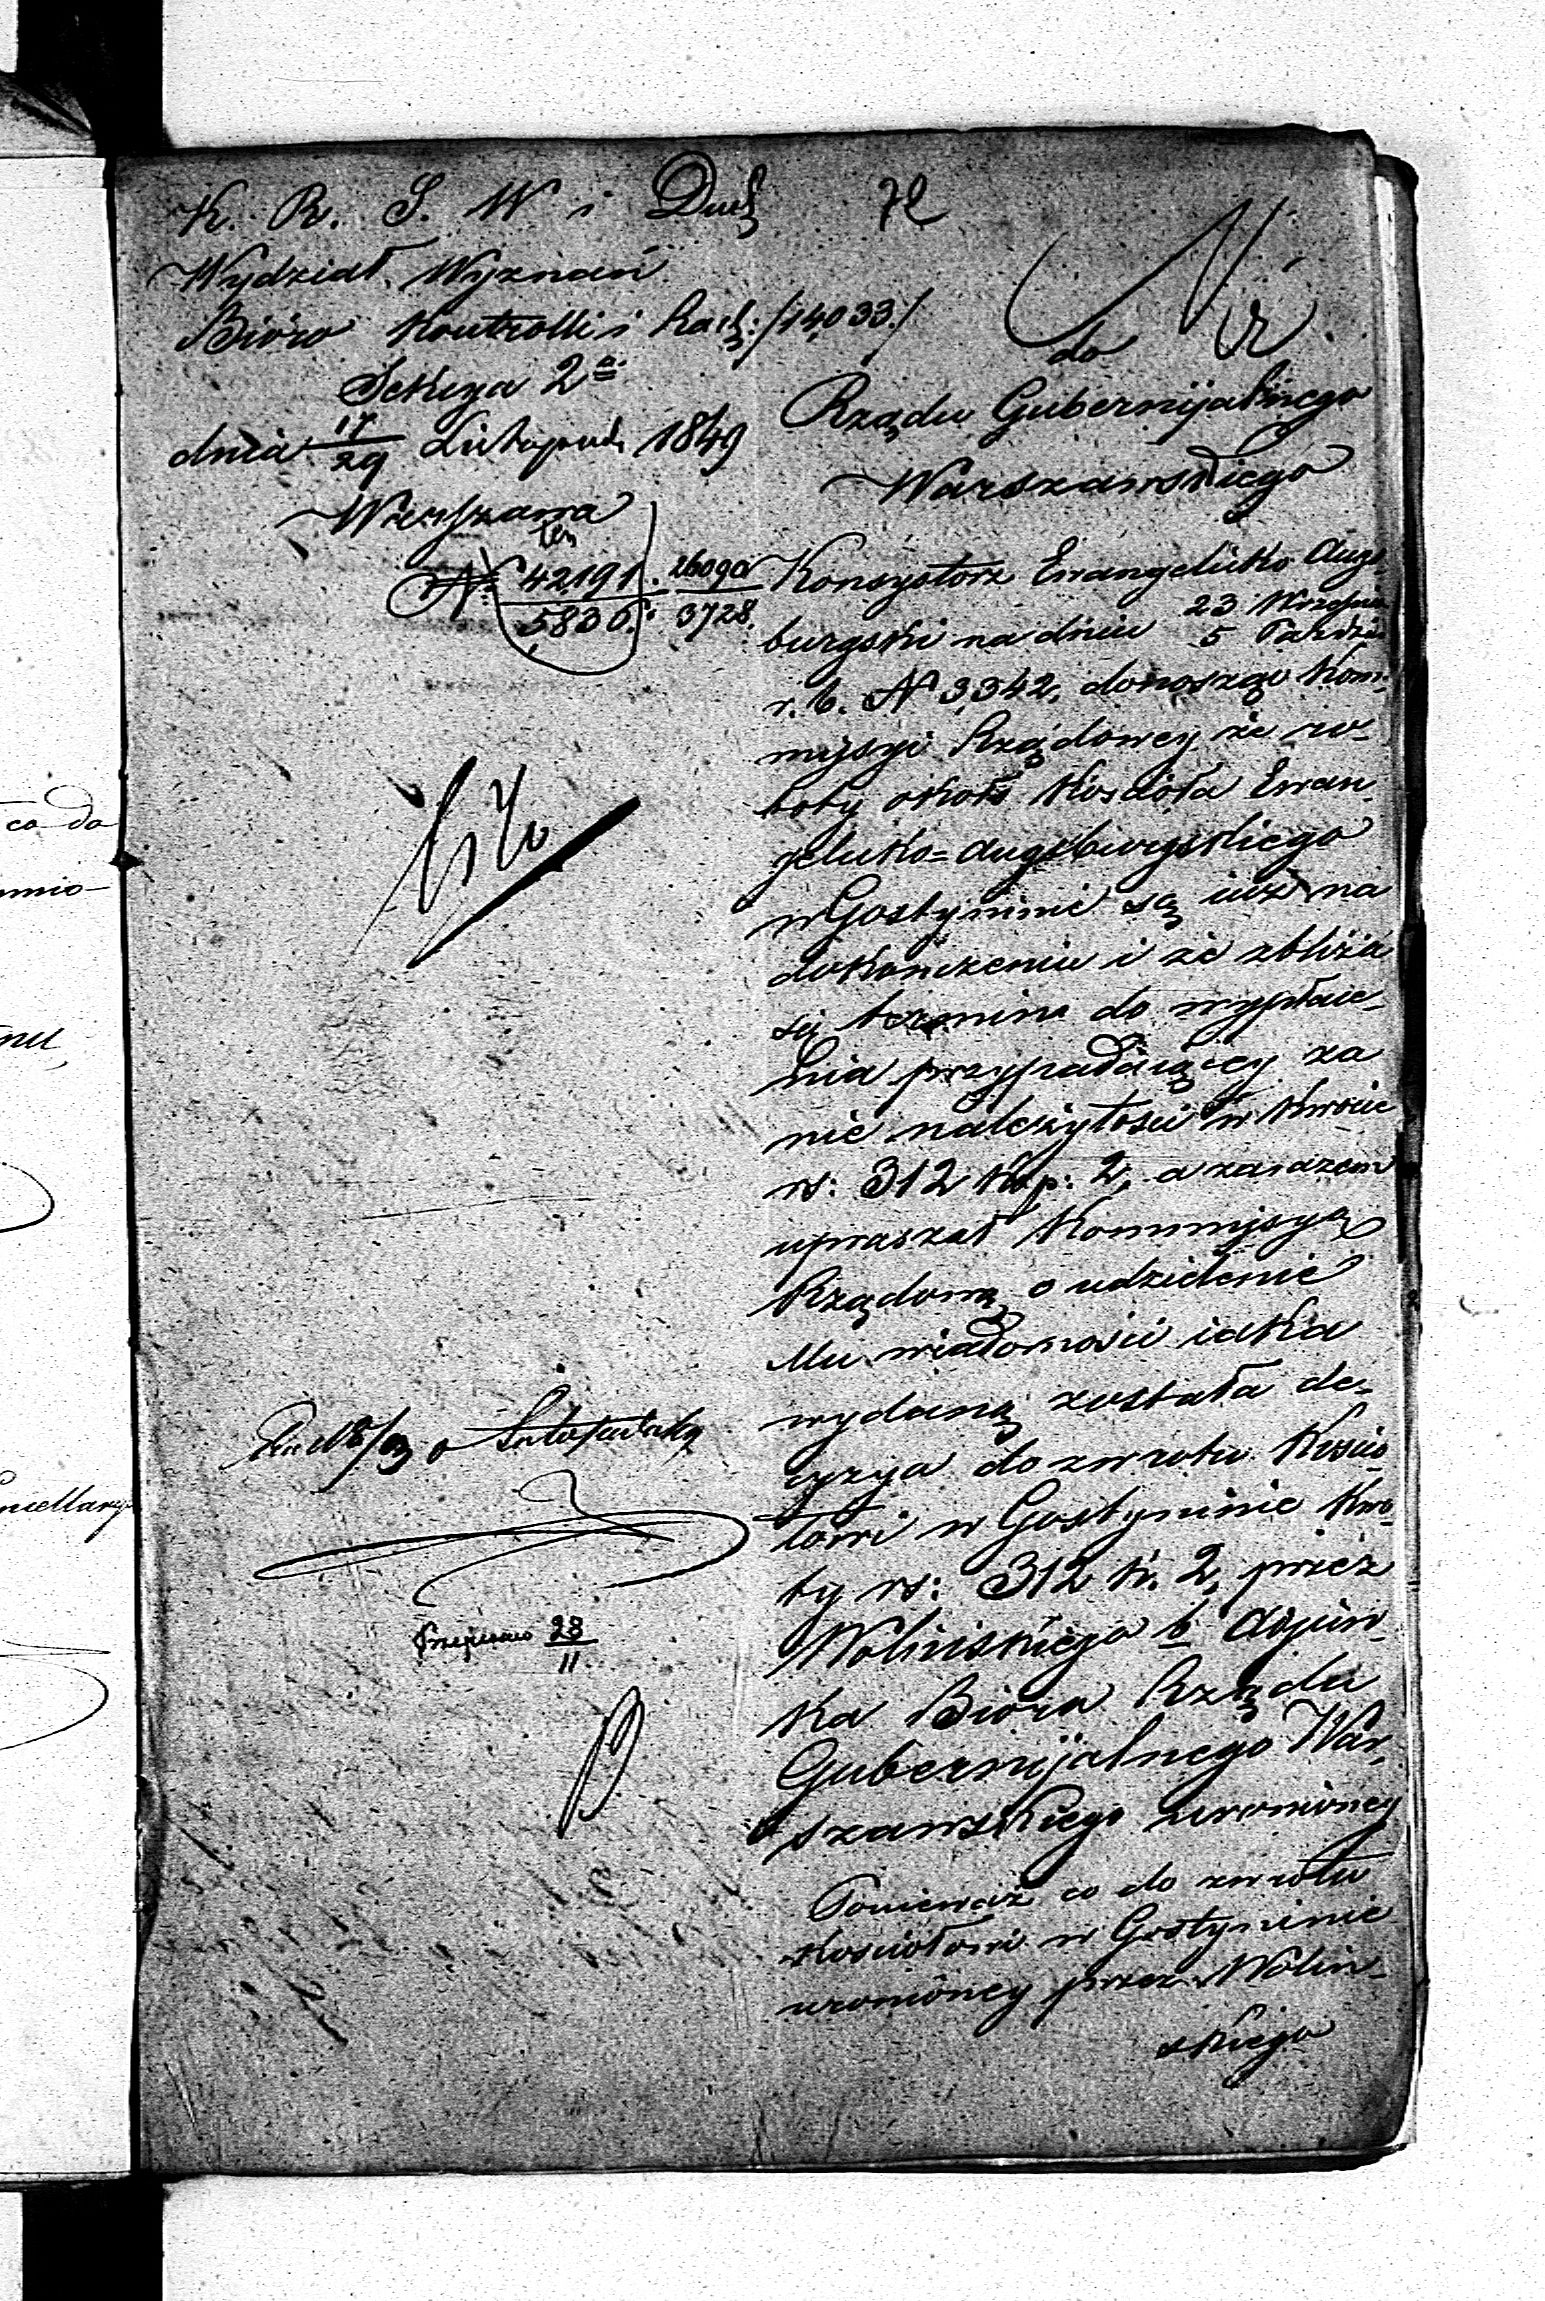 K. R. S. W i Duch 72
Wydział Wyznań
Bióro Kontrolli i Rach: /14033./
Sekcya 2a
dnia 17/29 Listopada 1849
Warszawa
No 42191. 26090
5836. 3728.
do
Rządu Gubernijalnego
Warszawskiego
Konsystorz Ewangelicko Augs-
burgski na dniu 23 Września / 5 Paździer
r. b. N 3342, donosząc Kom-
mysyi Rządowey, że ro-
boty około Kościoła Ewan-
gelicko=Augsburgskiego
w Gostyninie są iuż na
dokończeniu i że zbliża
się termin do wypłace-
nia przypadaiącey za
nie należytości w kwocie
rs: 312 kop: 2, a zarazem
upraszał Kommysyą
Rządową o udzielenie
Mu wiadomości iaka
wydaną została de-
cyzya do zwrotu Kościo-
łowi w Gostyninie kwo-
ty rs: 312 k. 2, przez
Wolińskiego b Adjun-
kta Bióra Rządu
Gubernijalnego War-
szawskiego uronioney
Ponieważ co do zwrotu
Kościołowi w Gostyninie
uronioney przez Woliń-
skiego
Listopada
Przepisano 28/11
co do